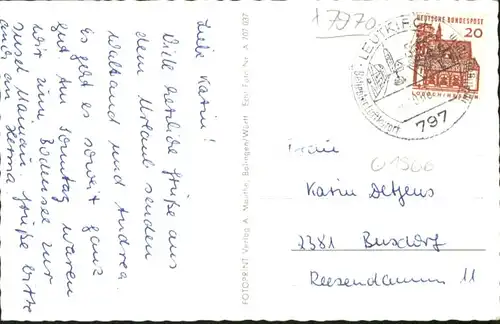 Liebe Karin!
Viele herzliche Grüße aus
dem Urlaub senden
Waltraud und Andrea.
Es geht es soweit ganz
gut. Am Sonntag waren
wir zum Bodensee zur
Insel Mainau. Grüße bitte
auch an Herma
FOTOPRINT Verlag A. Mauthe, Balingen/Württ. Echt Foto Nr. A 707 037
X 7970
DEUTSCHE BUNDESPOST
20
LORSCH HESSEN
LEUTKIRCH
797
01966
Frau
Karin Detjens
2381 Busdorf
Reesendamm 11